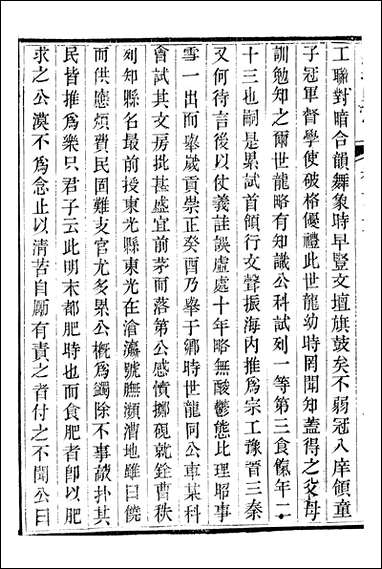 工聯對暗合韻舞象時早豎文壇旗鼓矣不弱冠入庠領童
子冠軍督學使破格優禮此世龍幼時罔聞知蓋得之父母
訓勉知之爾世龍略有知識公科試列一等第三食餼年二
十三也嗣是累試首領行文聲振海内推為宗工豫晋三秦
又何待言後以使義詿誤虛處十年略無酸鬱態比理郡事
雪一出而舉歲貢崇正癸酉乃舉于鄉時世龍同公車某科
會試其文房批甚盛宜前茅而落第公感憤擲硯就銓曹秩
列知縣名最前授東光縣東光在滄瀛號膴瀕漕地雖曰饒
而供應煩費民固難支官尤多累公槪為鐲除不事敲扑其
民皆推為樂只君子云此明末都肥時也而食肥者卽以肥
求之公漠不為念止以清苦自勵有責之者付之不聞公曰